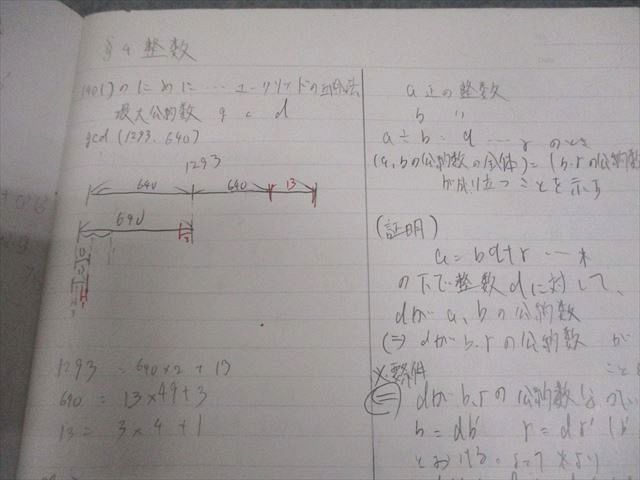 §4 整数
(40()のために…ユークリッドの互除法
最大公約数 g c d
gcd (1293, 640)
1293
640 640 13
640
1293 = 640×2 + 13
640 = 13×49+3
13 = 3×4 + 1
a 正の整数
b 〃
a÷b = q … r のとき
(a,bの公約数の全体)=(b,rの公約数
が成り立つことを示す
(証明)
a = bq+r …※
の下で整数dに対して、
dが a、bの公約数
(⇒) dが b、rの公約数 が
必要条件 こと
⇐ dが b,rの公約数なの
b = db' r = dr' (b'
とおける。よって ※より